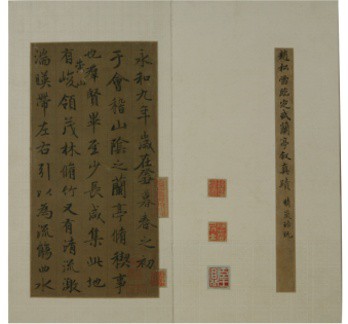 趙松雪臨定武蘭亭敘真蹟
永和九年歲在癸丑暮春之初
于會稽山陰之蘭亭脩稧事
也群賢畢至少長咸集此地
有崇山峻領茂林脩竹又有清流激
湍暎帶左右引以為流觴曲水